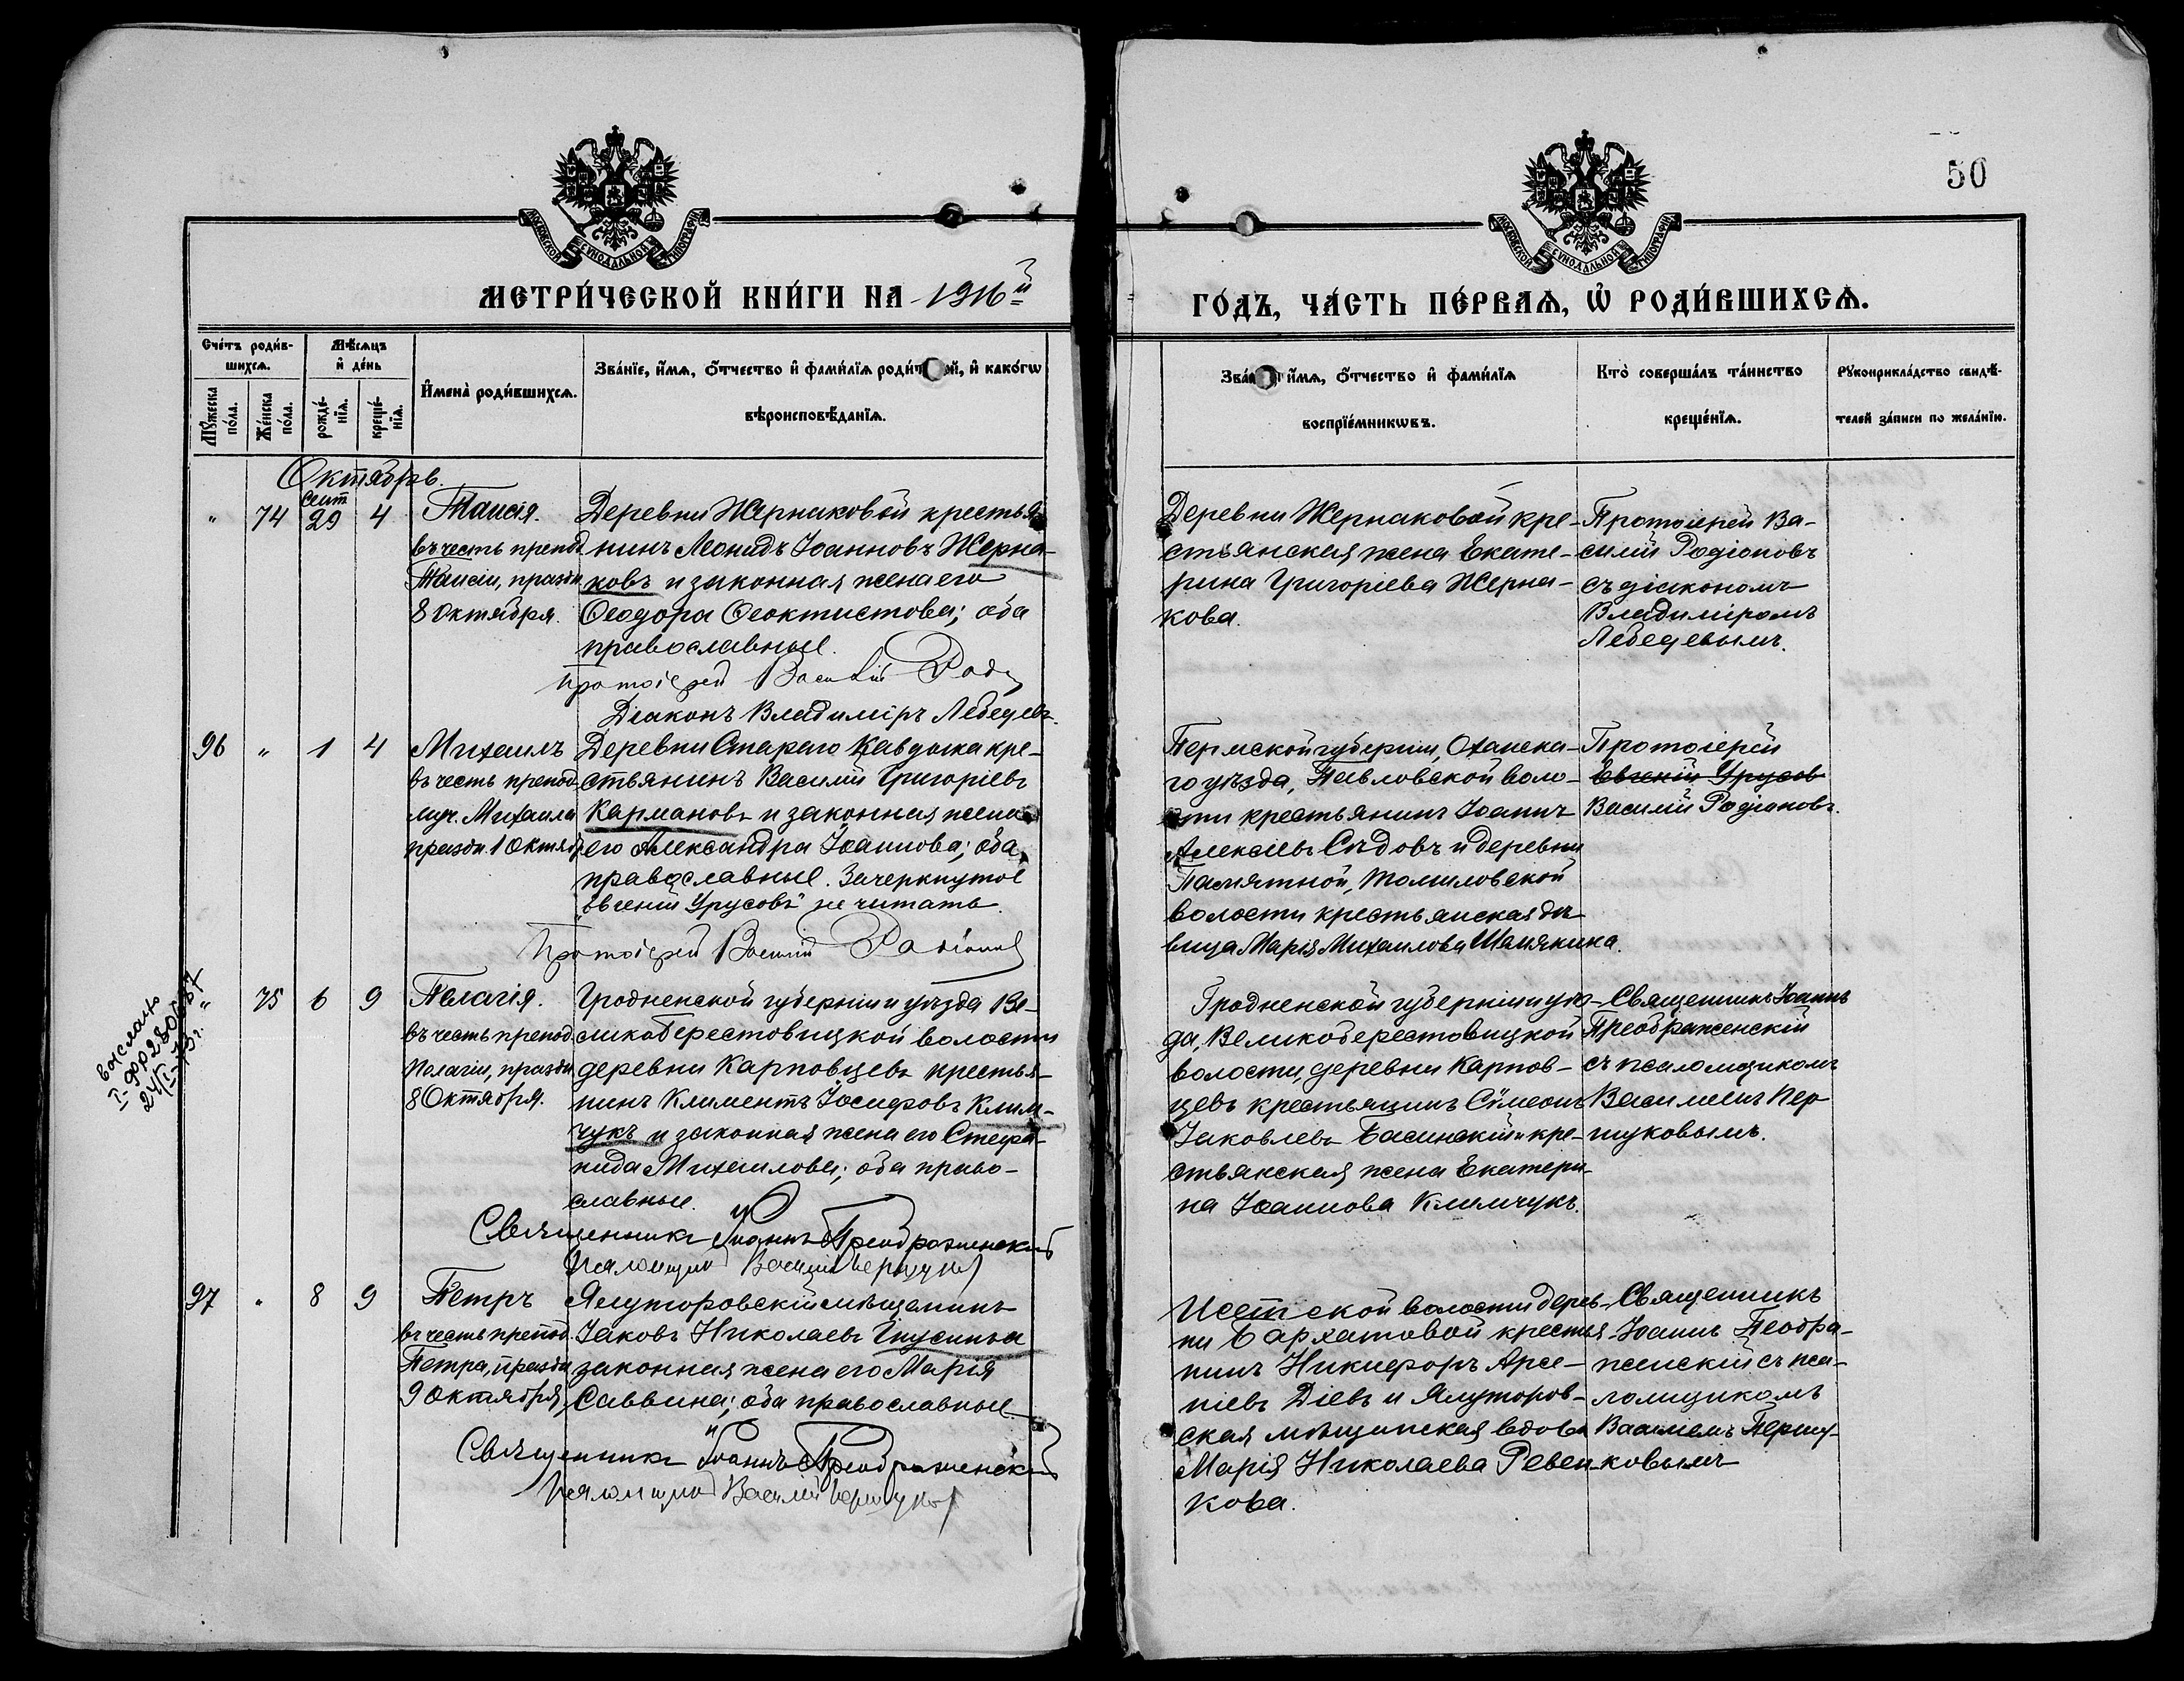 50
МОСКОВСКОЙ СУНОДАЛЬНОЙ ТИПОГРАФІИ
МОСКОВСКОЙ СУНОДАЛЬНОЙ ТИПОГРАФІИ
МЕТРИ́ЧЕСКОЙ КНИ́ГИ НА 1916й
ГО́ДЪ, ЧА́СТЬ ПЕ́РВАѦ, Ѡ҃ РОДИ́ВШИХСѦ.
Сче́тъ роди́в-
шихсѧ.
Мꙋ́жеска по́ла.
Же́нска по́ла.
Мѣ́сѧцъ
и҆ де́нь
рожде́-
нїѧ.
креще́-
нїѧ.
И҆мена̀ роди́вшихсѧ.
Зва́нїе, и҆́мѧ, ѻ҆́тчество и҆ фами́лїѧ роди́т й, и҆ како́гѡ
вѣроисповѣ́данїѧ.
Зва́н и҆́мѧ, ѻ҆́тчество и҆ фами́лїѧ
воспрїе́мникѡвъ.
Кто̀ соверша́лъ та́инство
креще́нїѧ.
Рꙋкоприкла́дство свидѣ́-
телей за́писи по жела́нїю.
Октябрь.
" 74 Сент 29 4
Таисія.
въ честь препод.
Таисіи, праздн.
8 Октября.
Деревни Жернаковой крестья-
нинъ Леонидъ Іоанновъ Жерна-
ковъ и законная жена его
Ѳеодора Ѳеоктистова; оба
православные.
Протоіерей Василій Роді
Діаконъ Владиміръ Лебедевъ.
Деревни Жернаковой кре-
стьянская жена Екате-
рина Григоріева Жерна-
кова.
Протоіерей Ва-
силій Родіоновъ
съ діакономъ
Владиміромъ
Лебедевымъ.
96 " 1 4
Михаилъ
въ честь препод.
муч. Михаила
праздн. 1 Октяб.
Деревни Старого Кавдыка кре-
стьянинъ Василій Григоріевъ
Кармановъ и законная жена
его Александра Іоаннова; оба
православные. Зачеркнутое
"Евгеній Урусовъ" не читать.
Протоіерей Василій Родіоновъ
Пермской губерніи, Оханска-
го уѣзда, Павловской воло-
сти крестьянинъ Іоаннъ
Алексіевъ Сѣдовъ и деревни
Памятной, Томиловской
волости крестьянская дѣ-
вица Марія Михаилова Шанякина.
Протоіерей
Евгеній Урусов
Василій Родіоновъ.
выслано
" 75 6 9
Пелагія.
въ честь препод.
Пелагіи, праздн.
8 Октября.
Гродненской губерніи и уѣзда Ве-
ликоберестовицкой волости
деревни Карповцевъ крестья-
нинъ Климентъ Іосифовъ Клим-
чукъ и законная жена его Стефа-
нида Михаилова; оба право-
славные.
Священникъ Іоаннъ Преображенскій
Псаломщикъ Василій Першуковъ
Гродненской губерніи и уѣз-
да, Великоберестовицкой
волости, деревни Карпов-
цевъ крестьянинъ Сѵмеонъ
Іаковлевъ Басинскій и кре-
стьянская жена Екатери-
на Іоаннова Климчукъ.
Священникъ Іоаннъ
Преображенскій
съ псаломщикомъ
Василіемъ Пер
шуковымъ.
97 " 8 9
Петръ
въ честь препод.
Петра, праздн.
9 Октября,
Ялуторовскій мѣщанинъ
Іаковъ Николаевъ
законная жена его Марія
Саввина; оба православные
Священникъ Іоаннъ Преображенскій
Псаломщикъ Василій Першуковъ
Исетской волости дерев-
ни Бархатовой крестья-
нинъ Никифоръ Арсе-
ніевъ Діевъ и Ялуторов-
ская мѣщанская вдова
Марія Николаева Ревен-
кова.
Священникъ
Іоаннъ Пеобра-
женскій съ пса-
ломщикомъ
Василіемъ Першу-
ковымъ